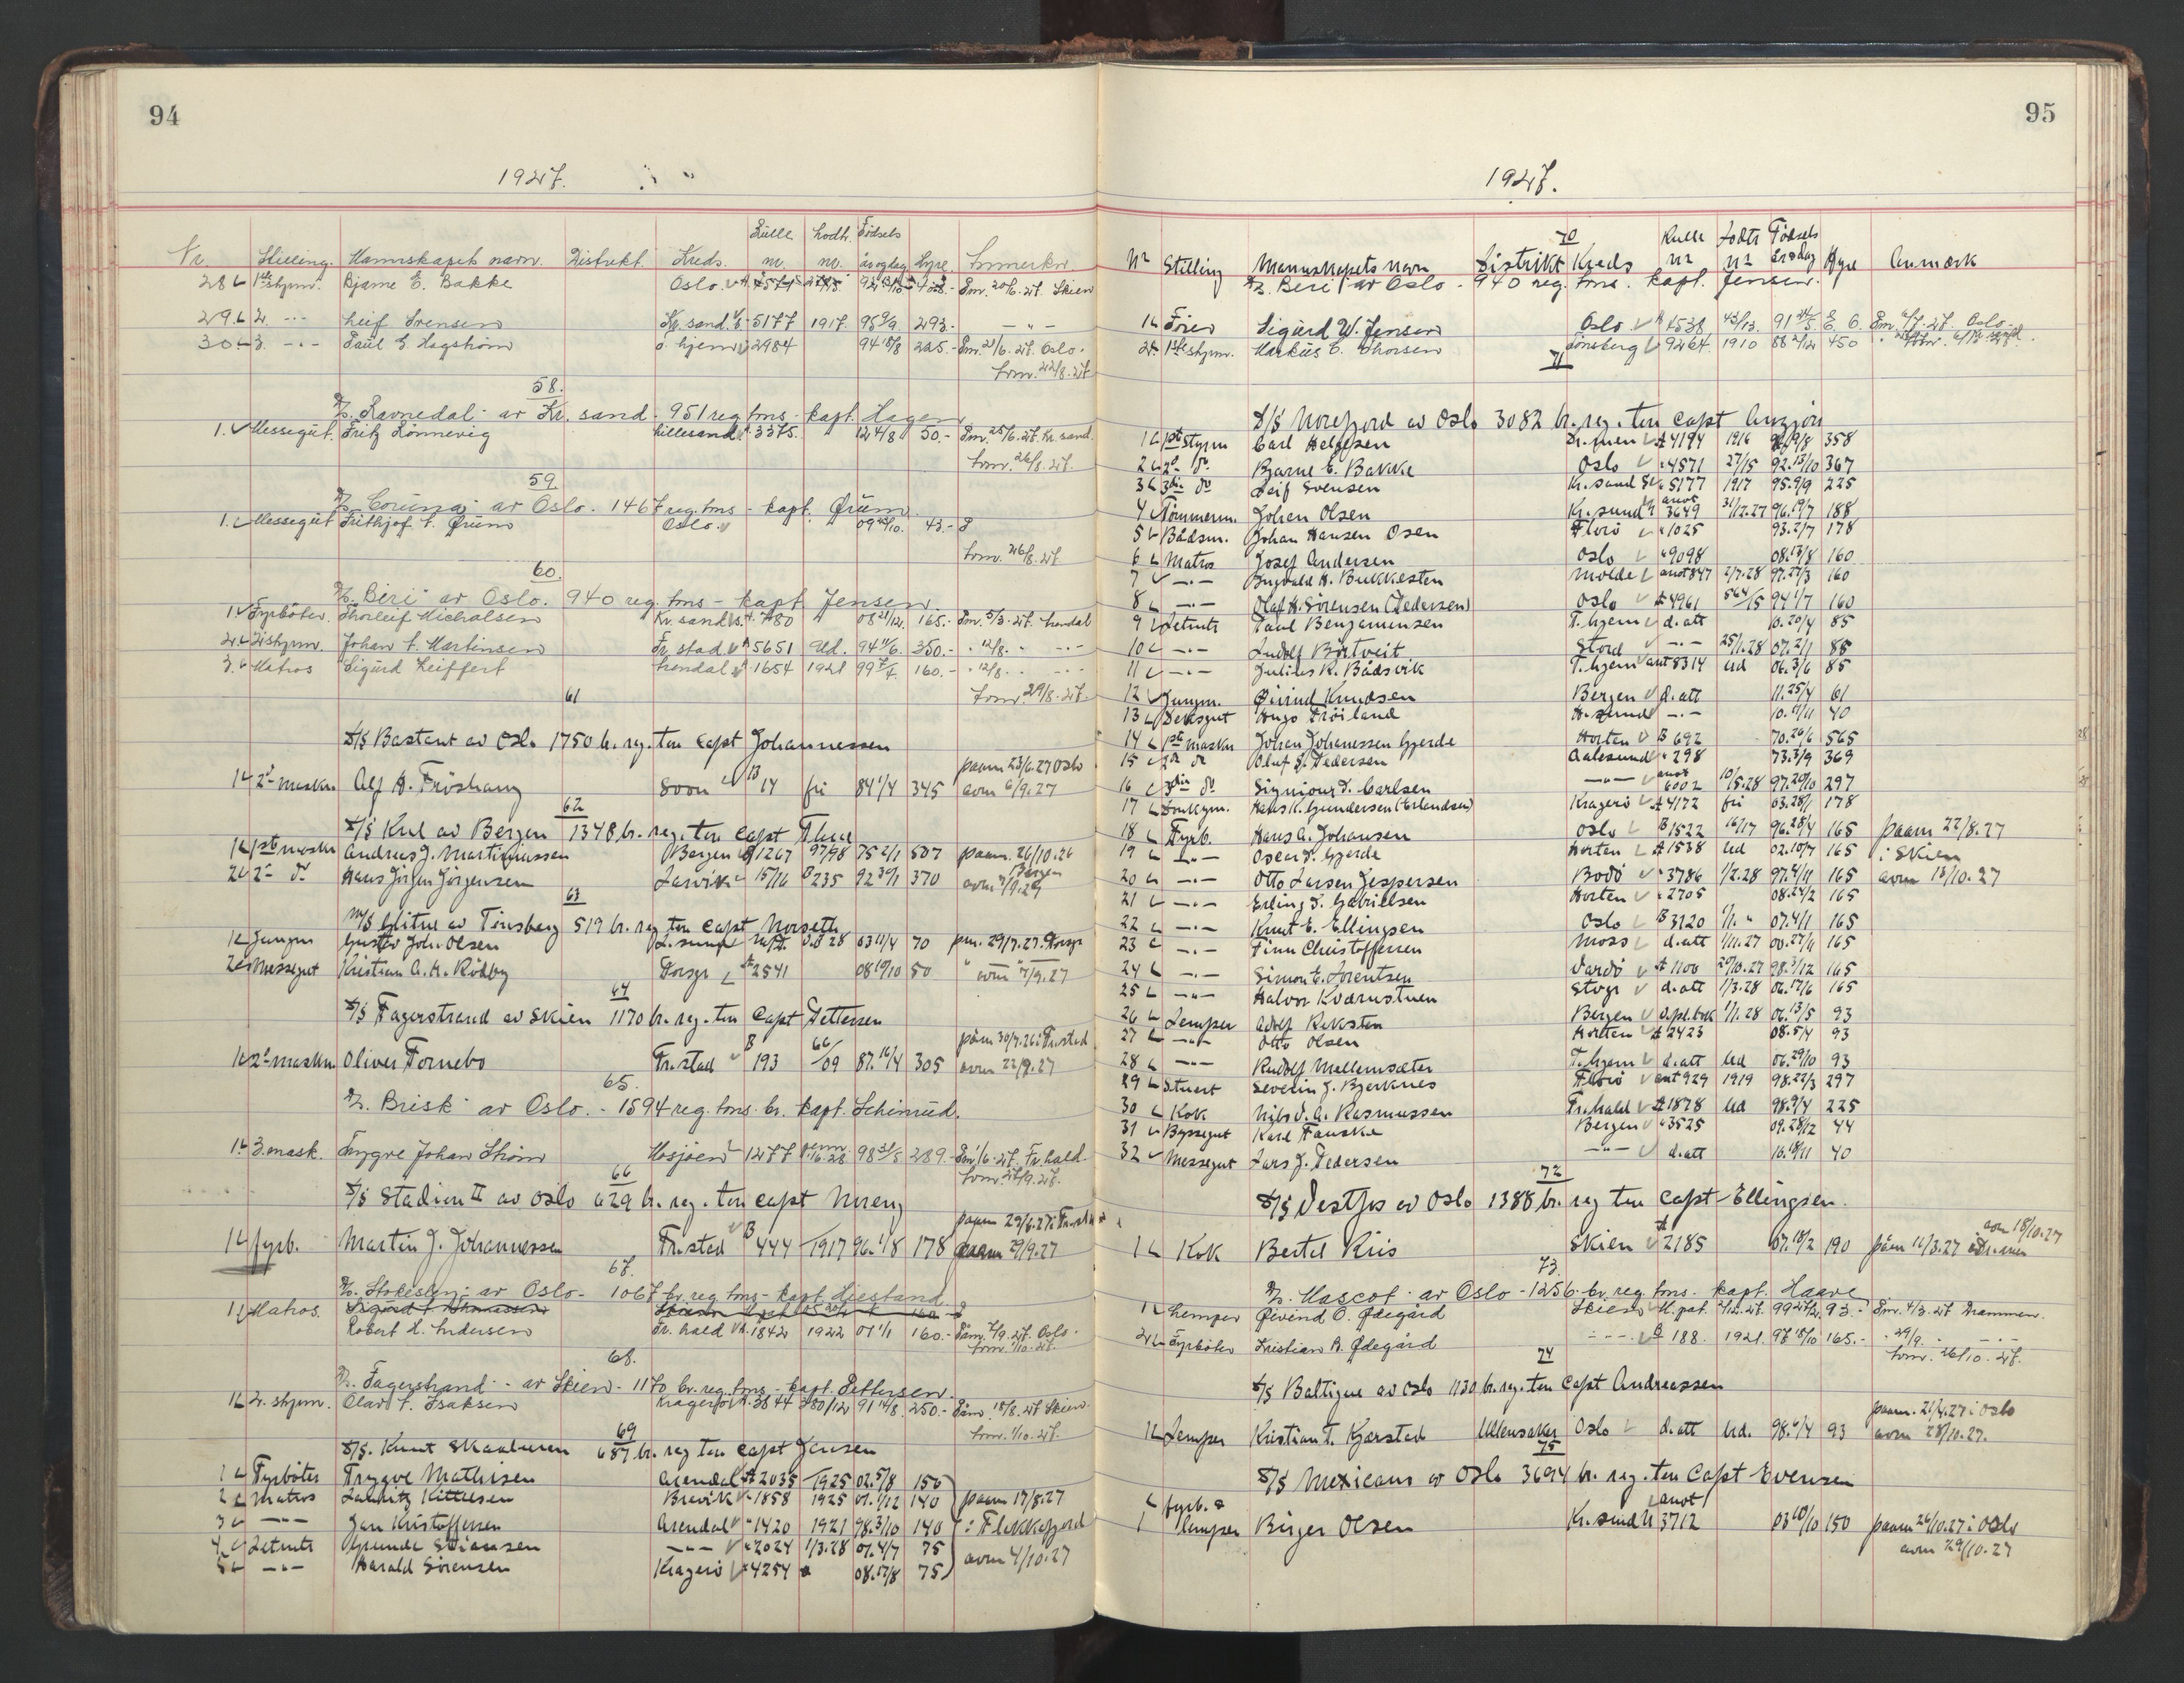 94
1927.
Rulle Lodtr. Fødsels
Nr. Stilling. Mannskapets navn. Distrikt. Kreds. nr. nr. år og dag Hyre. Anmerkn.
28 1ste styrm. Bjarne E. Bakke Oslo A. 4571 92 13/10 408.- Pm. 20/6.27 Skien
29. 2. -"- Leif Svensen Kr. sand. S. 5177 1917. 95 9/9. 293.- -"-
30. 3. -"- Paul E. Hagstrøm T. hjem 2984 94 18/8 225.- Pm. 21/6.27. Oslo.
Avm. 22/8.27
58.
D/S. Ravnedal. av Kr. sand. 951 reg. tons - kapt. Hagen
1. Messegut. Fritz Rönnevig Lillesand 3375. 12 4/8 50.- Pm. 25/6.27. Kr. sand.
Avm. 26/8.27.
59
D/S. Coruna av Oslo. 1467 reg. tons - kapt. Ørum.
1. Messegut Frithjof t. Ørum Oslo 09 /10. 43.-
Avm. 26/8.27
60.
D/S. Beri av Oslo. 940 reg. tons - kapt. Jensen.
1. Fyrböter. Thorleif Michalsen Kr. sand S. 780 08 21/12. 165.- Pm. 5/3.27. Arendal
2. 2. styrm. Johan t. Martinsen Fr. stad A 5651 Ud. 94 11/6. 350.- " 12/8. " -"-
3. Matros Sigurd Reiffert Arendal. 1654 1921 99 2/4. 160.- " 12/8. " -"-
Avm. 29/8.27.
61
D/S Bastant av Oslo 1750 br. reg. ton Capt Johannessen
1 2. maskn. Alf H. Fröshaug Soon B 14 fri 84 1/4 345 paam 23/6.27 Oslo
avm 6/9.27
62
D/S Knl av Bergen 1348 br. reg. ton Capt Thue
1 1ste maskn Andreas J. Martiniussen Bergen B 1267 97/98 75 2/1 507 paam. 26/10.26
Bergen
2 2. do Hans Jörgen Jörgensen Larvik 15/16 B 235 92 30/1 370 avm 7/9.27
63
M/S Glitne av Tönsberg 519 br. reg ton Capt Norseth
1 Jungm Gustav Joh. Olsen 63 11/4 70 pm. 29/7.27. Porsgr
2 Messegut Kristian A. H. Röbby Porsgr A 2541 08 19/10 50 " avm 7/9.27
64
D/S Fagerstrand av Skien 1170 br. reg. ton Capt Pettersen
1 2. maskn Oliver Fornebo Fr. stad B 193 66/09 87. 16/4 305 påm 30/7.26 i Fr. stad
avm 22/9.27
65.
D/S. Brisk av Oslo. - 1594 reg. tons. br. kapt. Schimrud.
1. 3. mask. Trygve Johan Strøm Mosjøen 1277 98 31/5 289.- Pm. 1/6.27. Fr. hald.
Avm. 27/9.27.
66
D/S Stadion II av Oslo 629 br. reg. ton Capt Noreng
1 fyrb. Martin J. Johannessen Fr. stad B 444 1917 96. 1/8 178 paam 29/6.27 i Fr. stad
avm 29/9.27
67.
D/S. Stokesley av Oslo. 1067 br. reg. tons - kapt. Liestand
1. Matros.
Robert H. Andersen Fr. hald A. 1842 1922 07 1/1 160.- Påm. 7/9.27. Oslo.
Avm. 1/10.27.
68.
D/S. Fagerstrand av Skien. 1170 br. reg. tons - kapt. Pettersen.
1 2. styrm. Olav t. Isaksen Kragerö A. 3644 280/12 91 14/8. 250.- Påm. 18/8.27 Skien
Avm. 1/10.27.
69
D/S. Knut Skaaluren 687 br. reg ton Capt Jensen
1 Fyrböter Trygve Mathisen Arendal A 2035 1925 02. 5/8 150
2 Matros Lauritz Kittilsen Brevik " 1858 1925 07. 1/12 140 paam 17/8.27
3 -"- Jan Kristoffersen Arendal " 1420 1921 98. 3/10 140 i Flekkefjord
4 Letmtr Grunde Stiansen -"- " 2024 1/3.28 07. 4/7 75 avm 4/10.27
5 -"- Harald Sörensen Kragerö " 4254 08. 17/8 75
95
1927.
70
Rulle Lodtr Fødsels
Nr Stilling Mannskapets navn Distrikt Kreds nr nr år og dag Hyre Anmærk
D/S. Beri av Oslo - 940 reg. tons. kapt. Jensen.
1 Fører Sigurd W. Jensen Oslo A 4538 43/13. 91 24/5 E. 6. Pm. 6/7.27. Oslo.
2 1ste styrm. Markus C. Thorsen Tönsberg 9264. 1910 88 2/12 450
71
D/S Norefjord av Oslo 3082 br. reg. ton Capt Anzjön
1 1ste styrm Carl Helgesen Dr. men A 4194 1916 19/8 358
2 2. do Bjarne E. Bakke Oslo " 4571 27/15 92. 13/10 367
3 3die do Leif Svensen Kr. sand S " 5177 1917 95. 9/9 225
4 Tömmerm. Johan Olsen Kr. sund N anot 3649 31/12.27 96. 19/7 188
5 Bådsm. Johan Hansen Osen Florö " 1025 93. 2/7 178
6 Matros Josef Andersen Oslo " 9098 08. 13/8 160
7 -"- Ingvald H. Bukkesten Molde anot 847 2/7.28 97. 27/3 160
8 -"- Olaf H. Sörensen (Pedersen) Oslo A 4961 564/15 94 1/7 160
9 Letmtr Paul Benjaminsen T. hjem d. att 10. 20/4 85
10 -"- Ludolf Börtveit Stord -"- 25/1.28 07. 2/1 85
11 -"- Julius R. Bådsvik T. hjem ant 8314 Ud 06. 3/6 85
12 Jungm. Öivind Knudsen Bergen d. att 11. 25/4 61
13 Deksgut Hugo Fröiland H. sund -"- 10. 19/11 40
14 1ste maskn Johan Johanessen Gjerde Horten B 692 70. 26/6 565
15 2de do Oluf S. Pedersen Aalesund " 298 73. 3/9 369
16 3die do Signious P. Carlsen -"- anot 6002 10/5.28 97. 20/10 297
17 Donkym. Hans K. Gundersen (Erlandsen) Kragerö A 4172 fri 03. 28/1 178
18 Fyrb. Hans A. Johansen Oslo B 1522 16/17 96. 28/4 165 paam 22/8.27
19 -"- Oscar S. Gjerde Horten A 1538 Ud 02. 10/7 165 i Skien
20 -"- Otto Larsen Jespersen Bodö " 3786 1/2.28 97. 4/11 165 avm 13/10.27
21 -"- Erling S. Gabrielsen Horten " 2705 08. 24/2 165
22 -"- Knut E. Ellingsen Oslo B 3120 1/1. " 07. 4/1 165
23 -"- Finn Christoffersen Moss d. att 1/11.27 00. 27/11 165
24 -"- Simon E. Lorentsen Vardö A 1100 29/10.27 98. 3/12 165
25 -"- Halvor Kværnstuen Stvgr d. att 1/3.28 06. 17/6 165
26 Lemper Adolf Reksten Bergen 1/1.28 06. 13/5 93
27 -"- Otto Olsen Horten A 2423 08. 5/4 93
28 -"- Rudolf Mellemsæter T. hjem d. att Ud 06. 29/10 93
29 Stuert Severin J. Bjerknes Florö ant 929 1919 98. 22/3 297
30 Kok Nils V. A. Rasmussen Fr. hald A 1878 Ud 98. 9/4 225
31 Byssegut Karl Fauske Bergen " 3525 09. 28/12 44
32 Messegut Lars J. Pedersen -"- d. att 10. 18/11 40
72
D/S Vestfos av Oslo 1388 br. reg ton Capt Ellingsen.
1 Kok Bertel Riis Skien A 2185 07. 18/2 190 påm 11/3.27 i Dr. men
avm 18/10.27
73.
D/S. Mascot. av Oslo - 1256. br. reg. tons. kapt. Haave
1 Lemper Øivind O. Ødegård Skien M. pat. 2/12.27. 99 27/12. 93.- Pm. 4/3.27 Drammen.
2 Fyrböter Kristian B. Ødegård -"- B 188. 1921. 97 18/10 165.- " 29/9. -"-
Avm. 26/10.27.
74
D/S Baltique av Oslo 1130 br. reg. ton Capt Andreassen
1 Lemper Kristian T. Kjærstad Ullensaker Oslo d. att Ud. 98. 6/4 93 paam. 21/4.27 i Oslo
avm 28/10.27.
75
D/S Mexicano av Oslo 3694 br. reg. ton Capt Evensen
1 fyrb. & lemper Birger Olsen Kr. sund N anot 3712 03 10/10 150 paam 26/10.27 i Oslo
avm 29/10.27